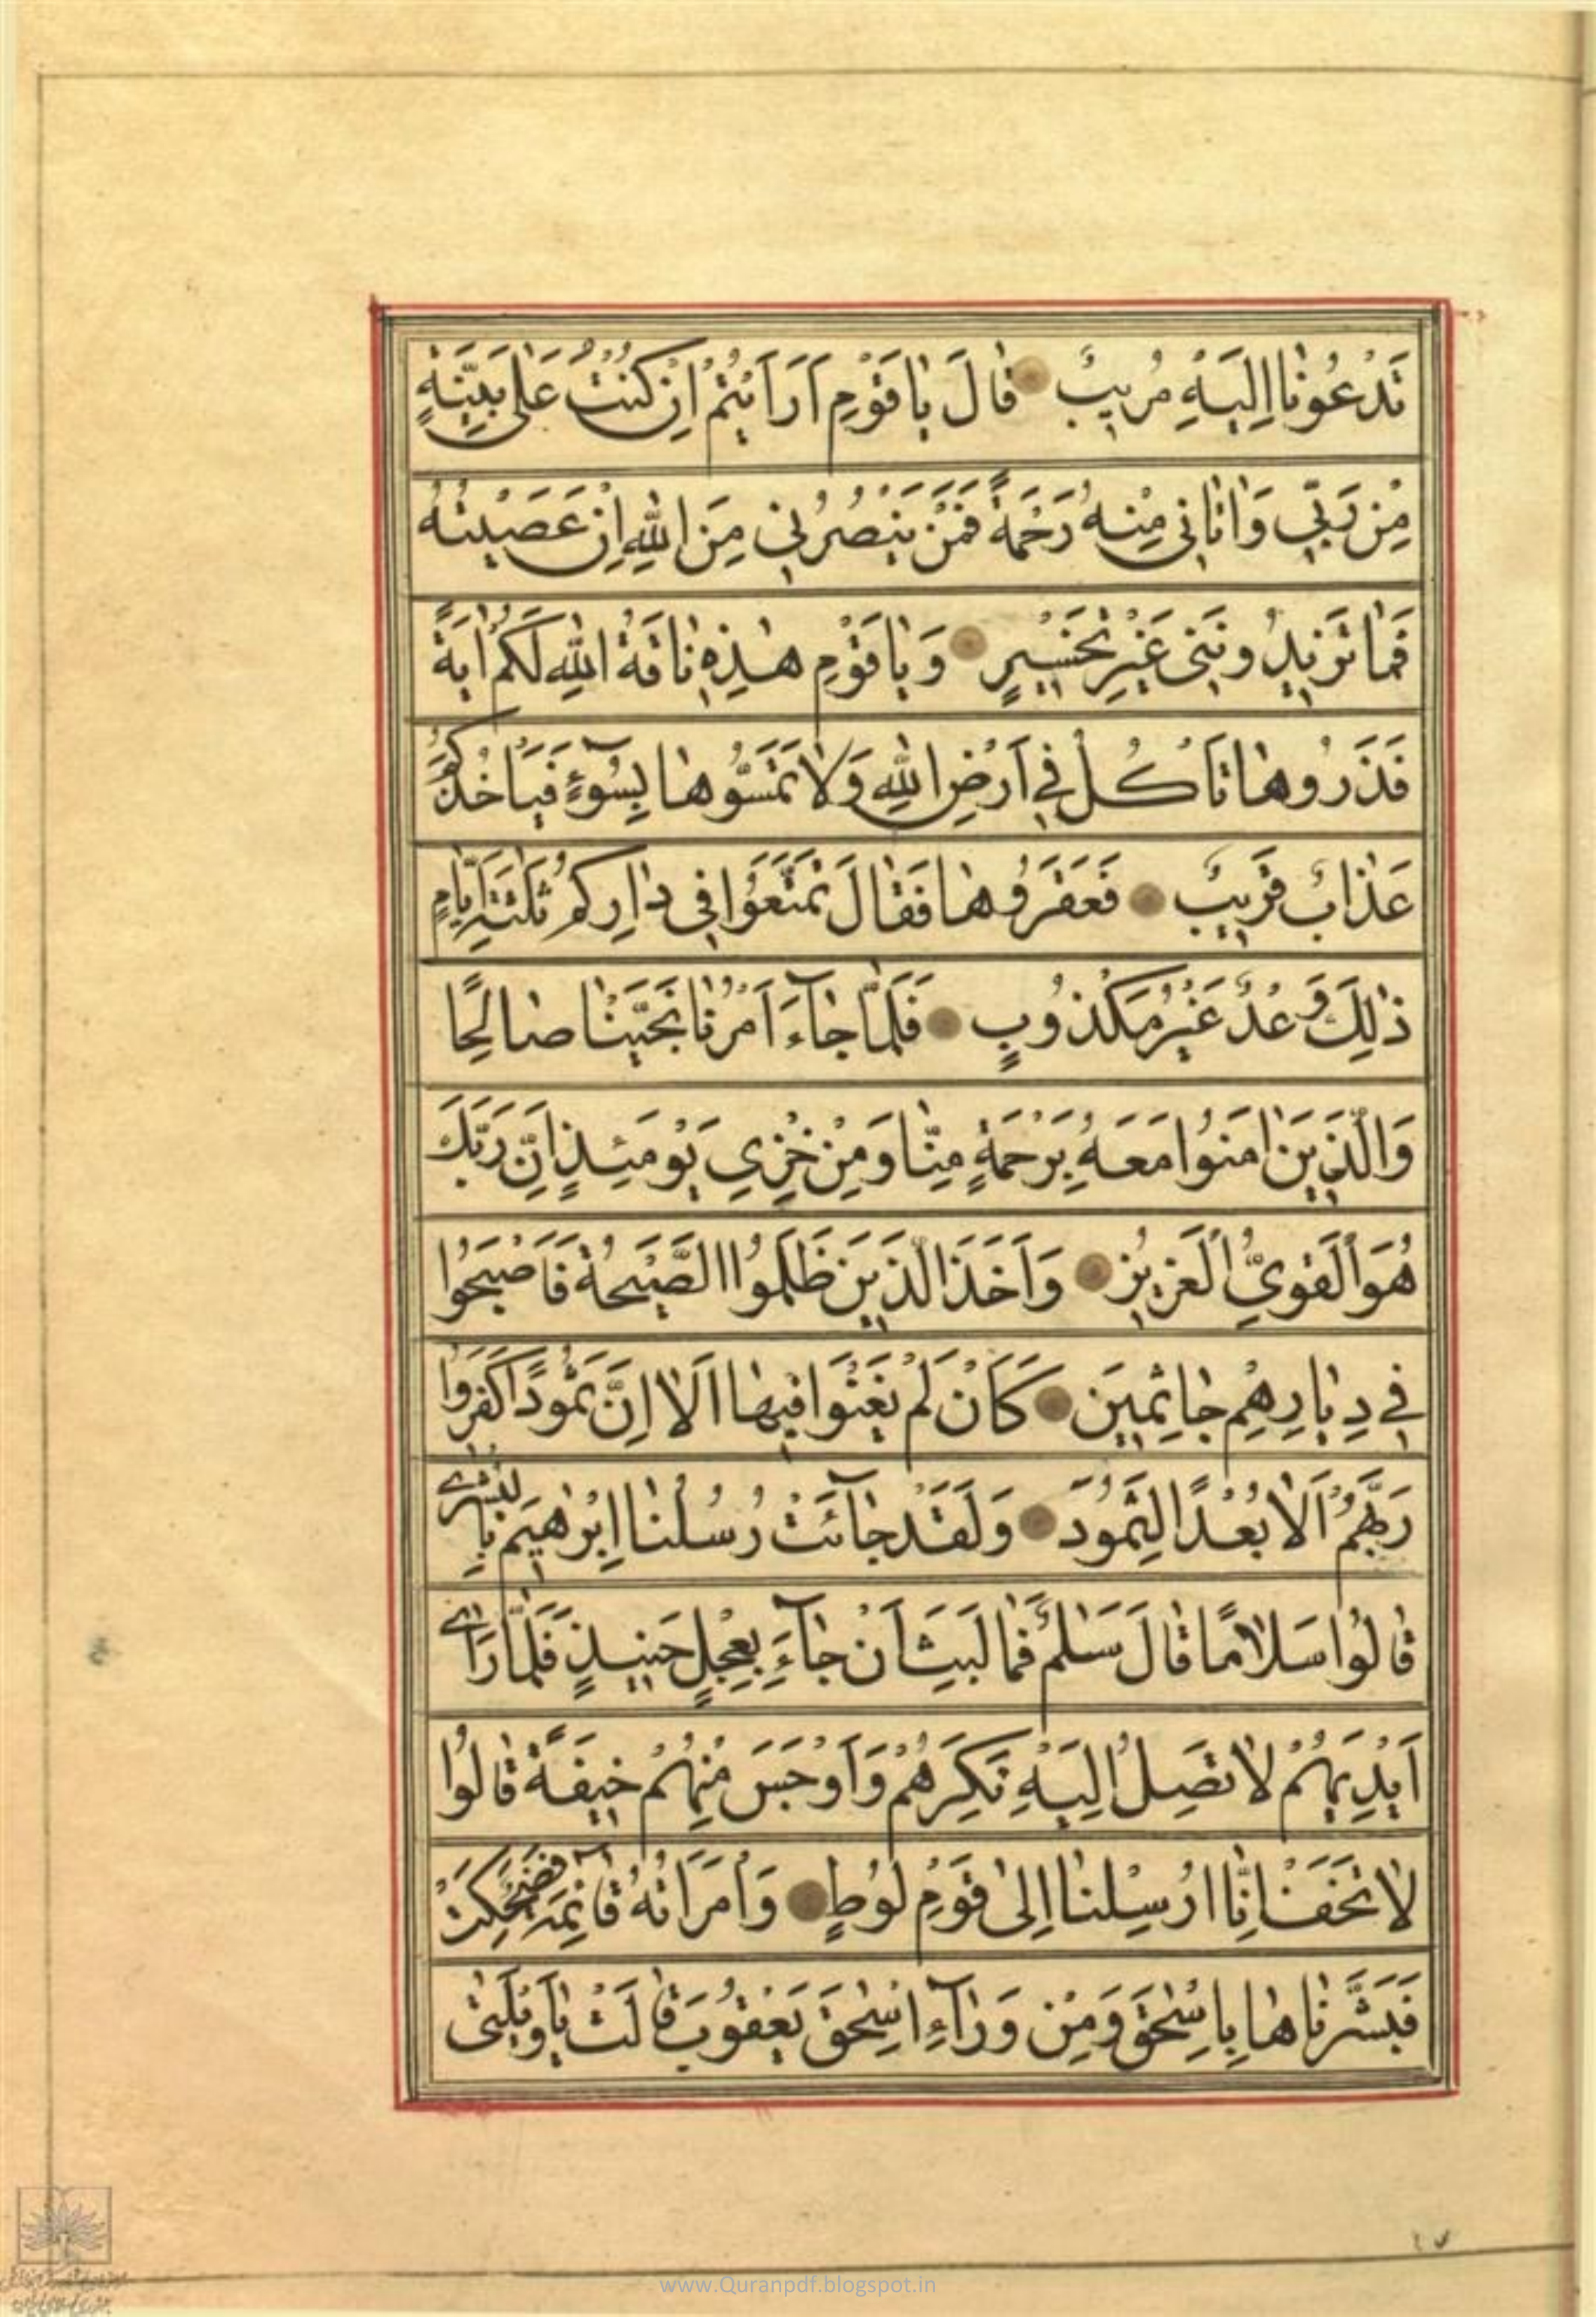 تَدْعُونٰا اِلَيْهِ مُرِيبٌ قٰالَ يٰا قَوْمِ اَرَاَيْتُمْ اِنْ كُنْتُ عَلٰى بَيِّنَةٍ
مِنْ رَبّي وَاٰتٰاني مِنْهُ رَحْمَةً فَمَنْ يَنْصُرُني مِنَ اللّٰهِ اِنْ عَصَيْتُهُ
فَمٰا تَزيدُونَني غَيْرَ تَخْسيرٍ وَ يٰا قَوْمِ هٰذِهِ نٰاقَةُ اللّٰهِ لَكُمْ اٰيَةً
فَذَرُوهٰا تَاْكُلْ في اَرْضِ اللّٰهِ وَلٰا تَمَسُّوهٰا بِسُوۤءٍ فَيَاْخُذَكُمْ
عَذٰابٌ قَريبٌ فَعَقَرُوهٰا فَقٰالَ تَمَتَّعُوا في دٰارِكُمْ ثَلٰثَةَ اَيّٰامٍ
ذٰلِكَ وَعْدٌ غَيْرُ مَكْذُوبٍ فَلَمّٰا جٰاۤءَ اَمْرُنٰا نَجَّيْنٰا صٰالِحًا
وَالَّذينَ اٰمَنُوا مَعَهُ بِرَحْمَةٍ مِنّٰا وَمِنْ خِزْيِ يَوْمَئِذٍ اِنَّ رَبَّكَ
هُوَ الْقَوِيُّ الْعَزيزُ وَاَخَذَ الَّذينَ ظَلَمُوا الصَّيْحَةُ فَاَصْبَحُوا
في دِيٰارِهِمْ جٰاثِمينَ كَاَنْ لَمْ يَغْنَوْا فيهٰا اَلٰا اِنَّ ثَمُودًا كَفَرُوا
رَبَّهُمْ اَلٰا بُعْدًا لِثَمُودَ وَلَقَدْ جٰاۤئَتْ رُسُلُنٰا اِبْرٰهيمَ بِالْبُشْرٰى
قٰالُوا سَلٰامًا قٰالَ سَلٰمٌ فَمٰا لَبِثَ اَنْ جٰاۤءَ بِعِجْلٍ حَنيذٍ فَلَمّٰا رَاٰى
اَيْدِيَهُمْ لٰا تَصِلُ اِلَيْهِ نَكِرَهُمْ وَاَوْجَسَ مِنْهُمْ خيفَةً قٰالُوا
لٰا تَخَفْ اِنّٰا اُرْسِلْنٰا اِلٰى قَوْمِ لُوطٍ وَامْرَاَتُهُ قٰاۤئِمَةٌ فَضَحِكَتْ
فَبَشَّرْنٰاهٰا بِاِسْحٰقَ وَمِنْ وَرٰاۤءِ اِسْحٰقَ يَعْقُوبَ قٰالَتْ يٰا وَيْلَتٰى
www.Quranpdf.blogspot.in